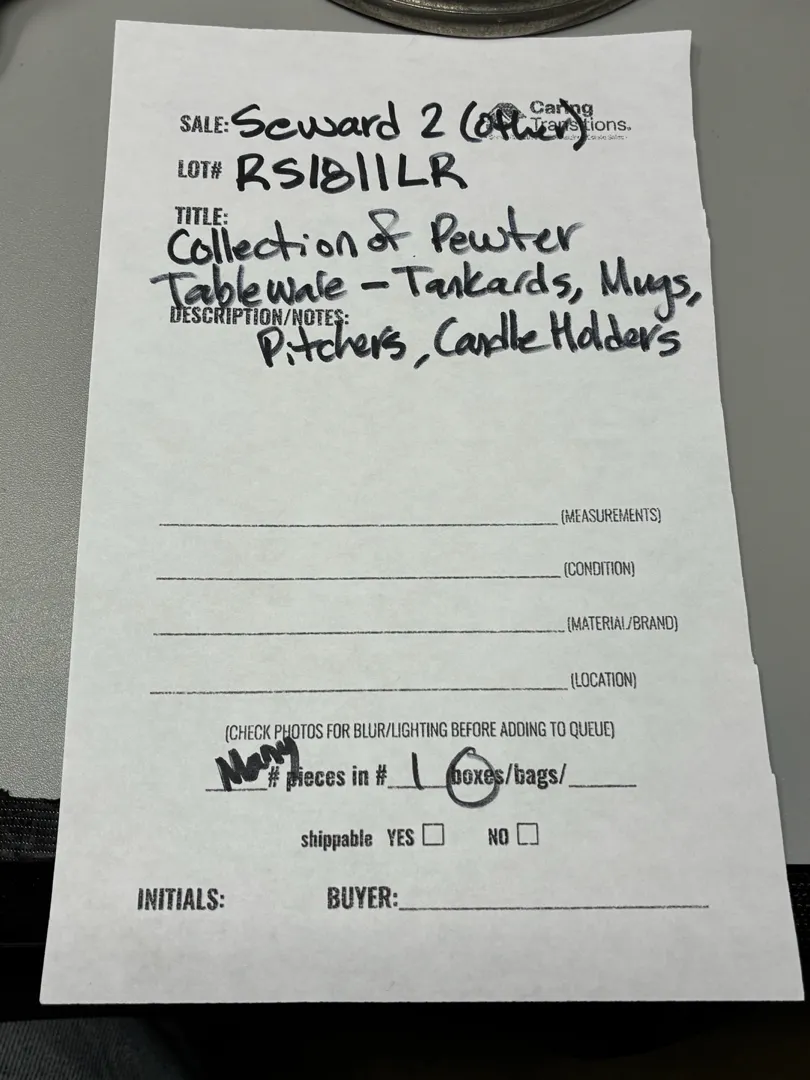 Caring
SALE: Seward 2 (other) Transitions.
LOT# RS1811LR
TITLE:
Collection of Pewter
Tableware – Tankards, Mugs,
DESCRIPTION/NOTES:
Pitchers, Candle Holders
(MEASUREMENTS)
(CONDITION)
(MATERIAL/BRAND)
(LOCATION)
(CHECK PHOTOS FOR BLUR/LIGHTING BEFORE ADDING TO QUEUE)
Many # pieces in # 1 boxes/bags/
shippable YES NO
INITIALS: BUYER: